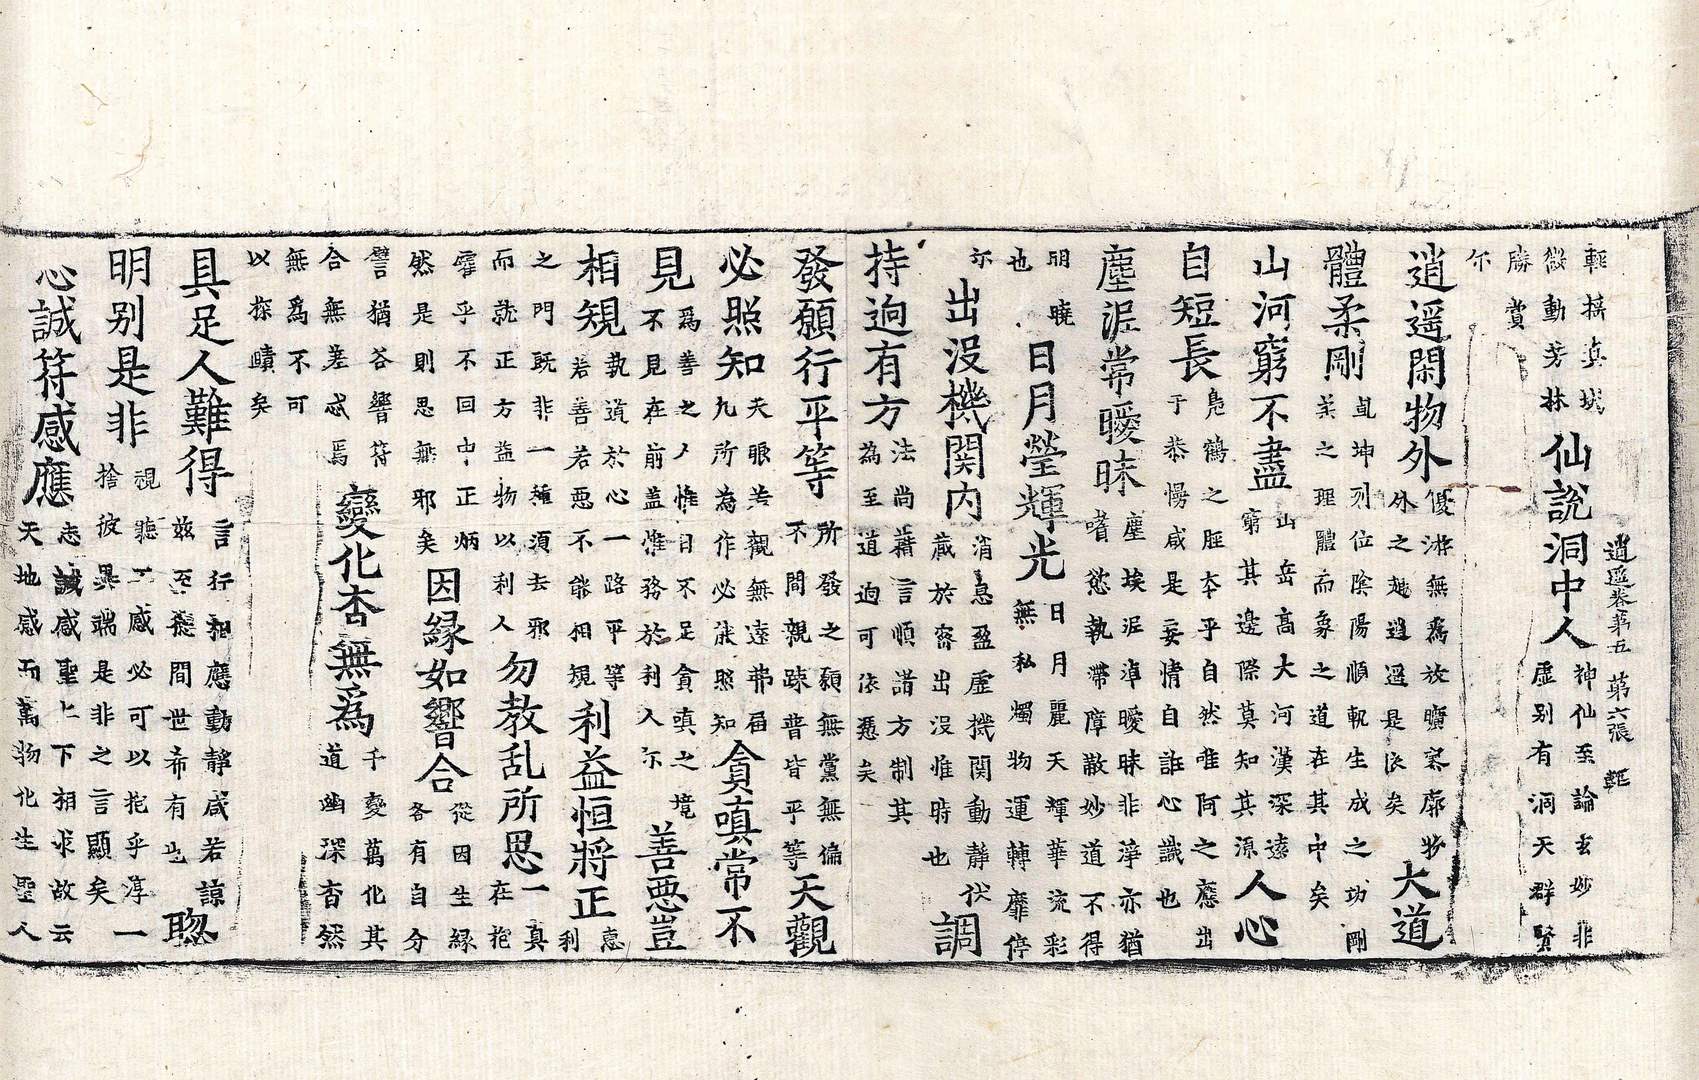 逍遥卷第五 第六張 輕
輕搽真域
微動芳林
仙説洞中人
神仙至論玄妙非
虚别有洞天群賢
勝賞
尒
逍遥閑物外
優游無爲放曠寥廓物
外之趣逍遥是依矣
大道
體柔剛
乹坤列位陰陽順軌生成之功剛
柔之理體而象之道在其中矣
山河窮不盡
山岳高大河漢深遠
窮其邊際莫知其源
人心
自短長
鳬鶴之脛本乎自然唯阿之應出
于恭慢咸是妄情自誑心識也
塵泥常曖昧
塵埃泥滓曖昧非淨亦猶
嗜慾執滯障蔽妙道不得
明曉
也
日月瑩輝光
日月麗天輝華流彩
無私燭物運轉靡停
尒
出没機関内
消息盈虚機関動靜伏
藏於密出没惟時也
調
持逈有方
法尚藉言順諧方制其
為至道逈可依憑矣
發願行平等
所發之願無黨無偏
不間親踈普皆乎等
天觀
必照知
天眼若觀無遠弗届
凡所為作必能照知
貪嗔常不
見
為善之人惟日不足貪嗔之境
不見在前盖惟務於利人尒
善惡豈
相規
執道於心一路平等
若善若惡不能相規
利益恒將正
恵
利
之門既非一種須去邪
而就正方益物以利人
勿教乱所思
一真
在抱
霏乎不回中正炳
然是則思無邪矣
因縁如響合
從因生縁
各有自分
譬猶谷響符
合無差忒焉
變化杳無爲
千變萬化其
道幽深杳然
無爲不可
以探賾矣
具足人難得
言行相應動靜咸若諒
兹至懿間世希有也
聦
明别是非
視聽一感必可以抱乎淳一
捨彼異端是非之言顯矣
心誠符感應
志誠感聖上下相求故云
天地感而萬物化生聖人